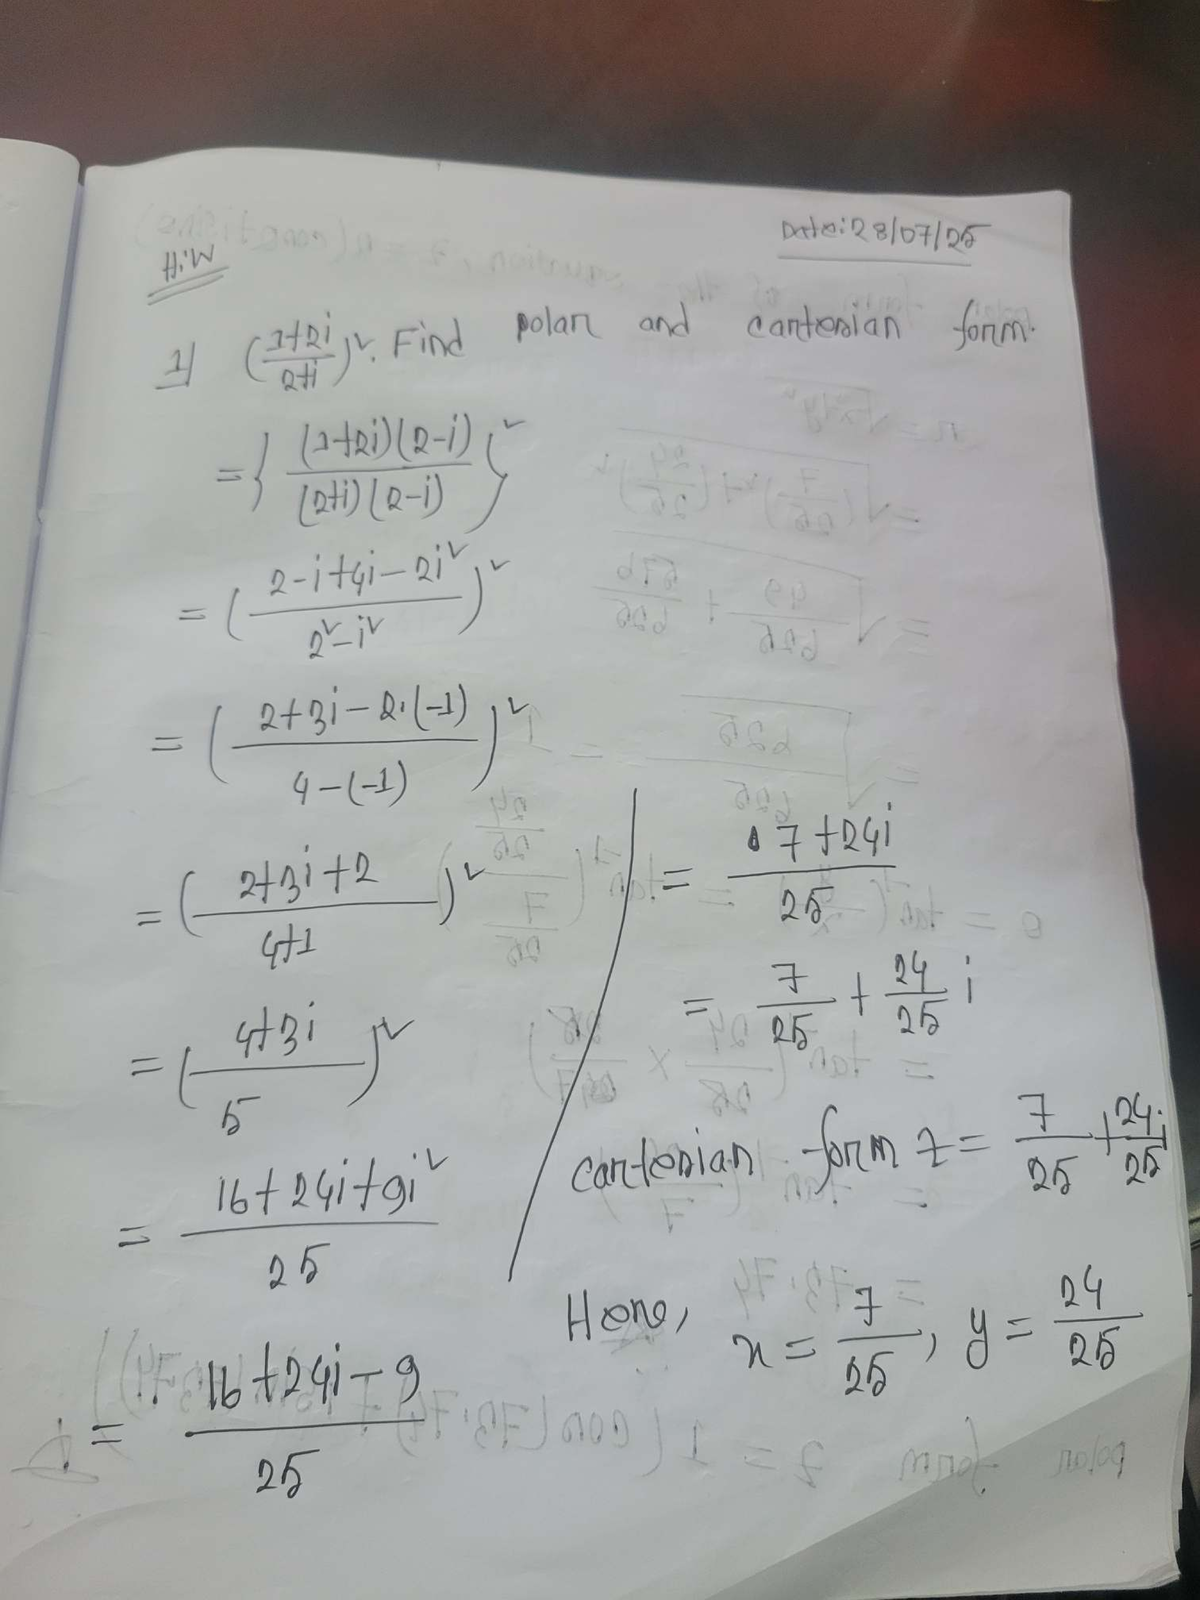 Date: 28/07/25
H.W
1) (1+2i/2+i)². Find polar and cartesian form.
= {(1+2i)(2-i)/(2+i)(2-i)}²
= (2-i+4i-2i²/2²-i²)²
= (2+3i-2·(-1)/4-(-1))²
= (2+3i+2/4+1)²
= (4+3i/5)²
= 16+24i+9i²/25
= 16+24i-9/25
= 7+24i/25
= 7/25 + 24/25 i
cartesian form z = 7/25 + 24/25 i
Here,
x = 7/25, y = 24/25